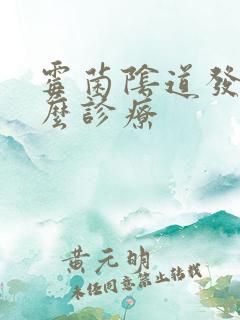 霉菌陰道發
麼診療
黃元明
未经同意禁止转载